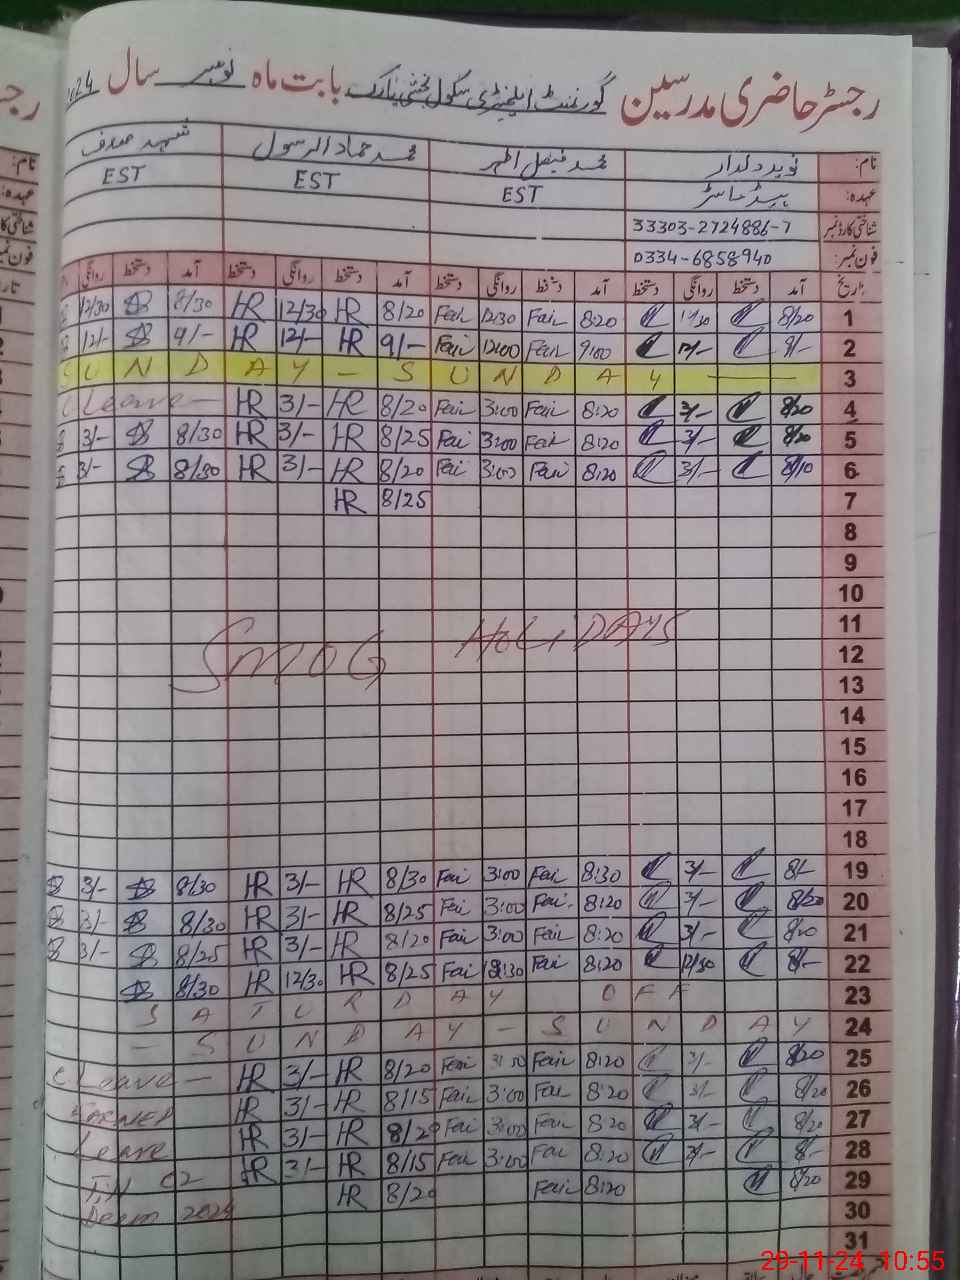 رجسٹر حاضری مدرسین گورنمنٹ ایلیمنٹری سکول بخشی پارک بابت ماہ نومبر سال 2024
نام: نوید دلدار محمد فیصل اظہر محمد حماد الرسول
عہدہ: ہیڈ ماسٹر EST EST EST
شناختی کارڈ نمبر 33303-2724886-7
فون نمبر: 0334-6858940
تاریخ آمد دستخط روانگی دستخط آمد دستخط روانگی دستخط آمد دستخط روانگی دستخط آمد دستخط روانگی
12/30 8/30 HR 12/30 HR 8/20 Fair 12:30 Fair 8:20 8/20 1
12/- 9/- HR 12/- HR 9/- Fair 12:00 Fair 9:00 12/- 9/- 2
SUNDAY - SUNDAY 3
C Leave - HR 3/- HR 8/20 Fair 3:00 Fair 8:20 3/- 8/20 4
3/- 8/30 HR 3/- HR 8/25 Fai 3:00 Fair 8:20 3/- 8/20 5
3/- 8/30 HR 3/- HR 8/20 Fai 3:00 Fair 8:20 3/- 8/10 6
HR 8/25 7
8
9
10
11
SMOG HOLIDAYS
12
13
14
15
16
17
18
3/- 8/30 HR 3/- HR 8/30 Fai 3:00 Fai 8:30 3/- 8/- 19
3/- 8/30 HR 3/- HR 8/25 Fai 3:00 Fai. 8:20 3/- 8/20 20
3/- 8/25 HR 3/- HR 8/20 Fai 3:00 Fair 8:20 3/- 8/20 21
8/30 HR 12/30 HR 8/25 Fai 12:30 Fair 8:20 12/30 8/- 22
SATURDAY OFF 23
- SUNDAY - SUNDAY 24
C Leave - HR 3/- HR 8/20 Fair 3:00 Fair 8:20 3/- 8/20 25
EARNED HR 3/- HR 8/15 Fai 3:00 Fai 8:20 3/- 8/20 26
Leave HR 3/- HR 8/20 Fai 3:00 Fai 8:20 3/- 8/20 27
HR 3/- HR 8/15 Fai 3:00 Fai 8:20 3/- 8/- 28
Till 02 HR 8/20 Fair 8:20 8/20 29
2024 30
31
29-11-24 10:55